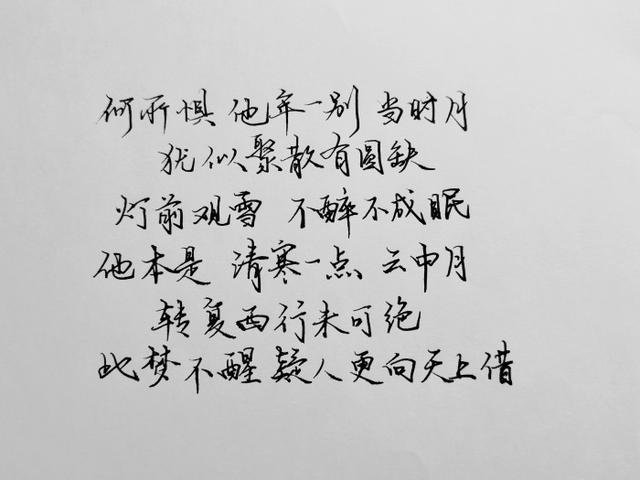 何所惧 他年一别 当时月
犹似聚散有圆缺
灯前观雪 不醉不成眠
他本是 清寒一点 云中月
转复西行未可绝
此梦不醒 疑人更向天上借